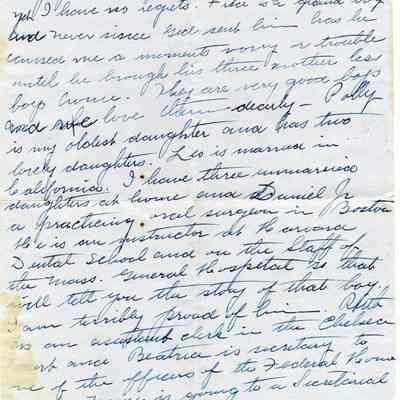 yet I have no regrets. Fire is a grand boy
and never since God sent him has he
caused me a moments worry or trouble
until he brough his three mother less
boys home. They are very good boys
and we love them dearly - Polly
is my oldest daughter and has two
lovely daughters. Leo is married in
California. I have three unmarried
daughters at home and Daniel Jr
a practicing oral surgeon in Boston
He is an instructor at Harvard
Dental School and on the Staff of
the Mass. General Hospetal so that
will tell you the story of that boy.
I am terribly proud of him. Ruth
is an assistant clerk in the Chelsea
and Beatrice is secretary to
of the officers of the Federal Home
is going to a Secretarial